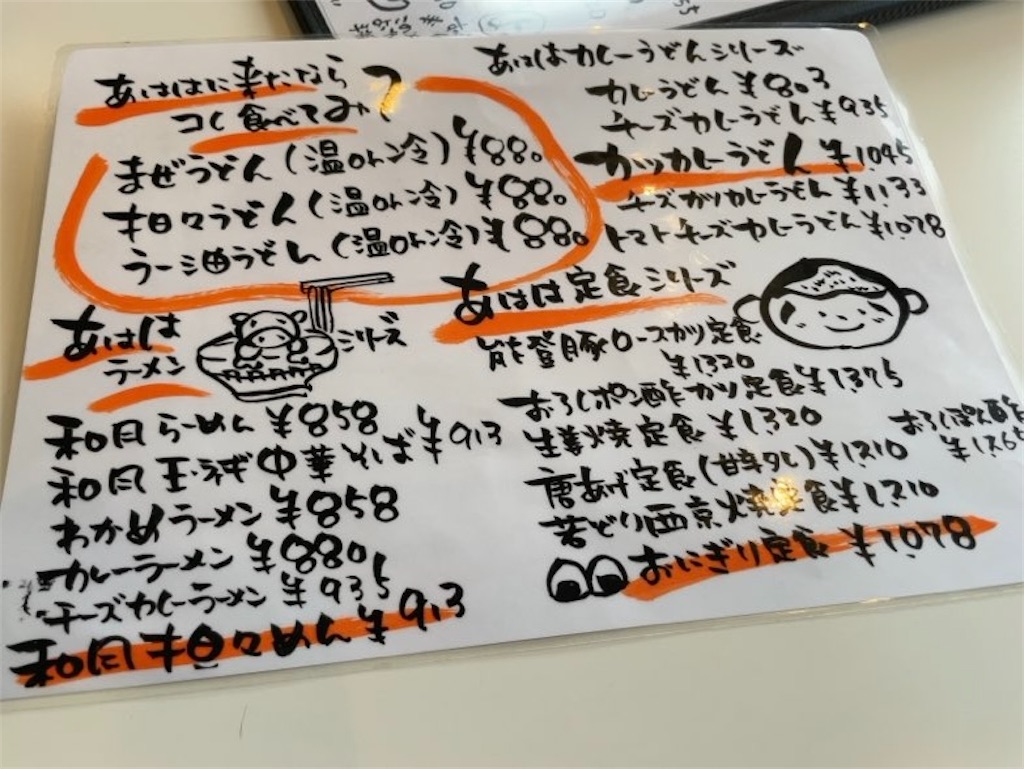 あははに来たなら
コレ食べてみて
まぜうどん(温or冷)¥880
担々うどん(温or冷)¥880
ラー油うどん(温or冷)¥880
あははカレーうどんシリーズ
カレーうどん ¥803
チーズカレーうどん ¥935
カツカレーうどん ¥1.045
チーズカツカレーうどん ¥1.133
トマトチーズカレーうどん ¥1.078
あはは
ラーメン
シリーズ
和風らーめん ¥858
和風玉ネギ中華そば ¥913
わかめラーメン ¥858
カレーラーメン ¥880
チーズカレーラーメン ¥935
和風担々めん ¥913
あはは定食シリーズ
能登豚ロースカツ定食
¥1320
おろしポン酢カツ定食 ¥1375
生姜焼定食 ¥1.320
おろしぽん酢
¥1.265
唐あげ定食(甘辛タレ)¥1.210
若どり西京焼定食 ¥1.210
おにぎり定食 ¥1.078